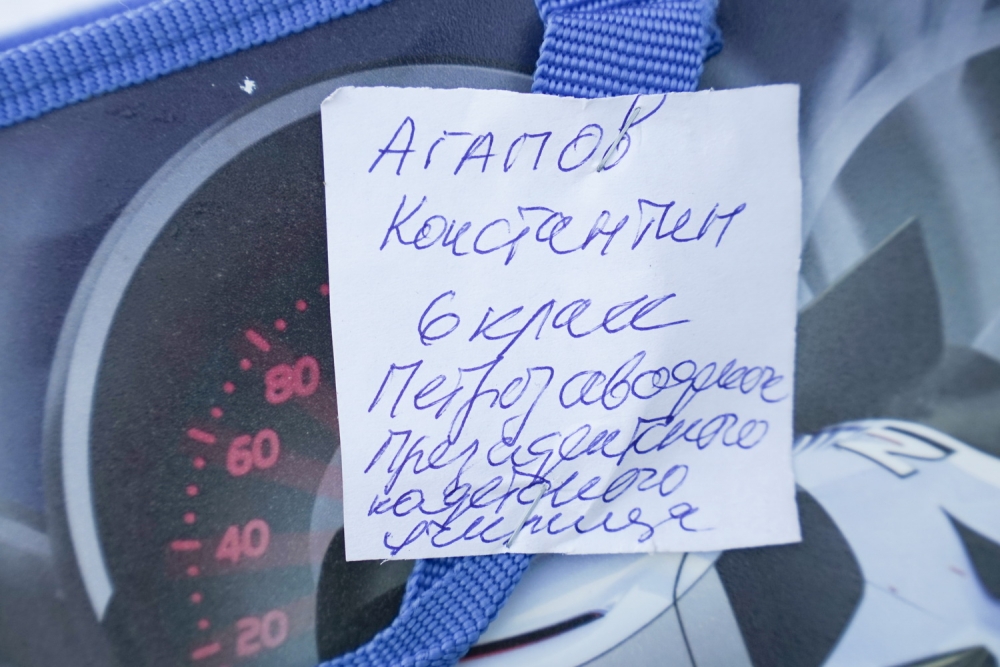 Агапов
Константин
6 класс
Петрозаводское
Президентского
кадетского
училища
80
60
40
20